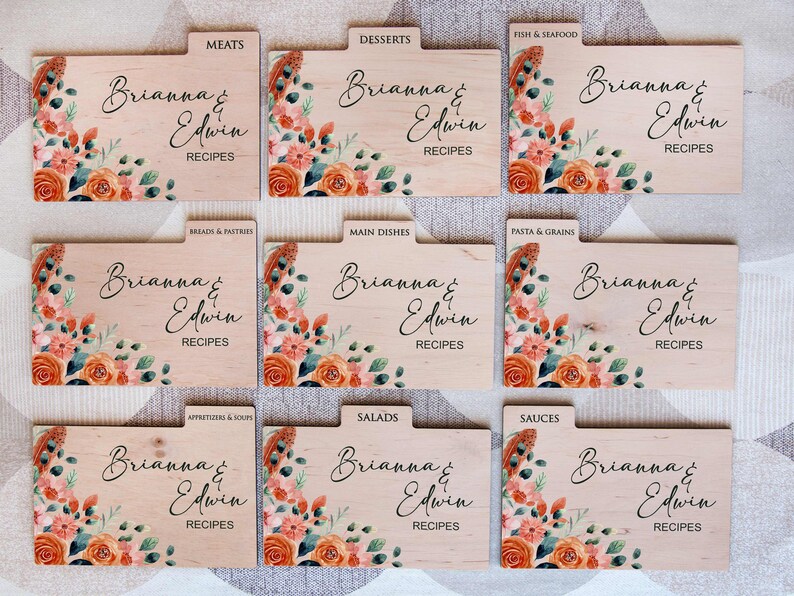 MEATS
Brianna &
Edwin
RECIPES
DESSERTS
Brianna &
Edwin
RECIPES
FISH & SEAFOOD
Brianna &
Edwin
RECIPES
BREADS & PASTRIES
Brianna &
Edwin
RECIPES
MAIN DISHES
Brianna &
Edwin
RECIPES
PASTA & GRAINS
Brianna &
Edwin
RECIPES
APPRETIZERS & SOUPS
Brianna &
Edwin
RECIPES
SALADS
Brianna &
Edwin
RECIPES
SAUCES
Brianna &
Edwin
RECIPES